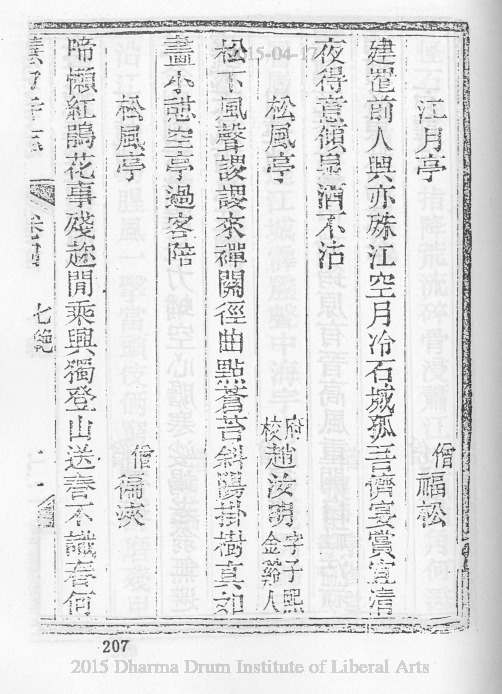 江月亭
僧福松
建罷前人興亦殊江空月冷石城孤吾儕宴賞宜清
夜得意傾泉酒不沽
松風亭
府校趙汝明字子熙金谿人
松下風聲謖謖來禪關徑曲點蒼苔斜陽掛樹真如
畫小憇空亭過客陪
松風亭
僧
啼懶紅鵑花事殘趁閒乘興獨登山送春不識春何
七絶
2015-04-17
207
2015 Dharma Drum Institute of Liberal Arts